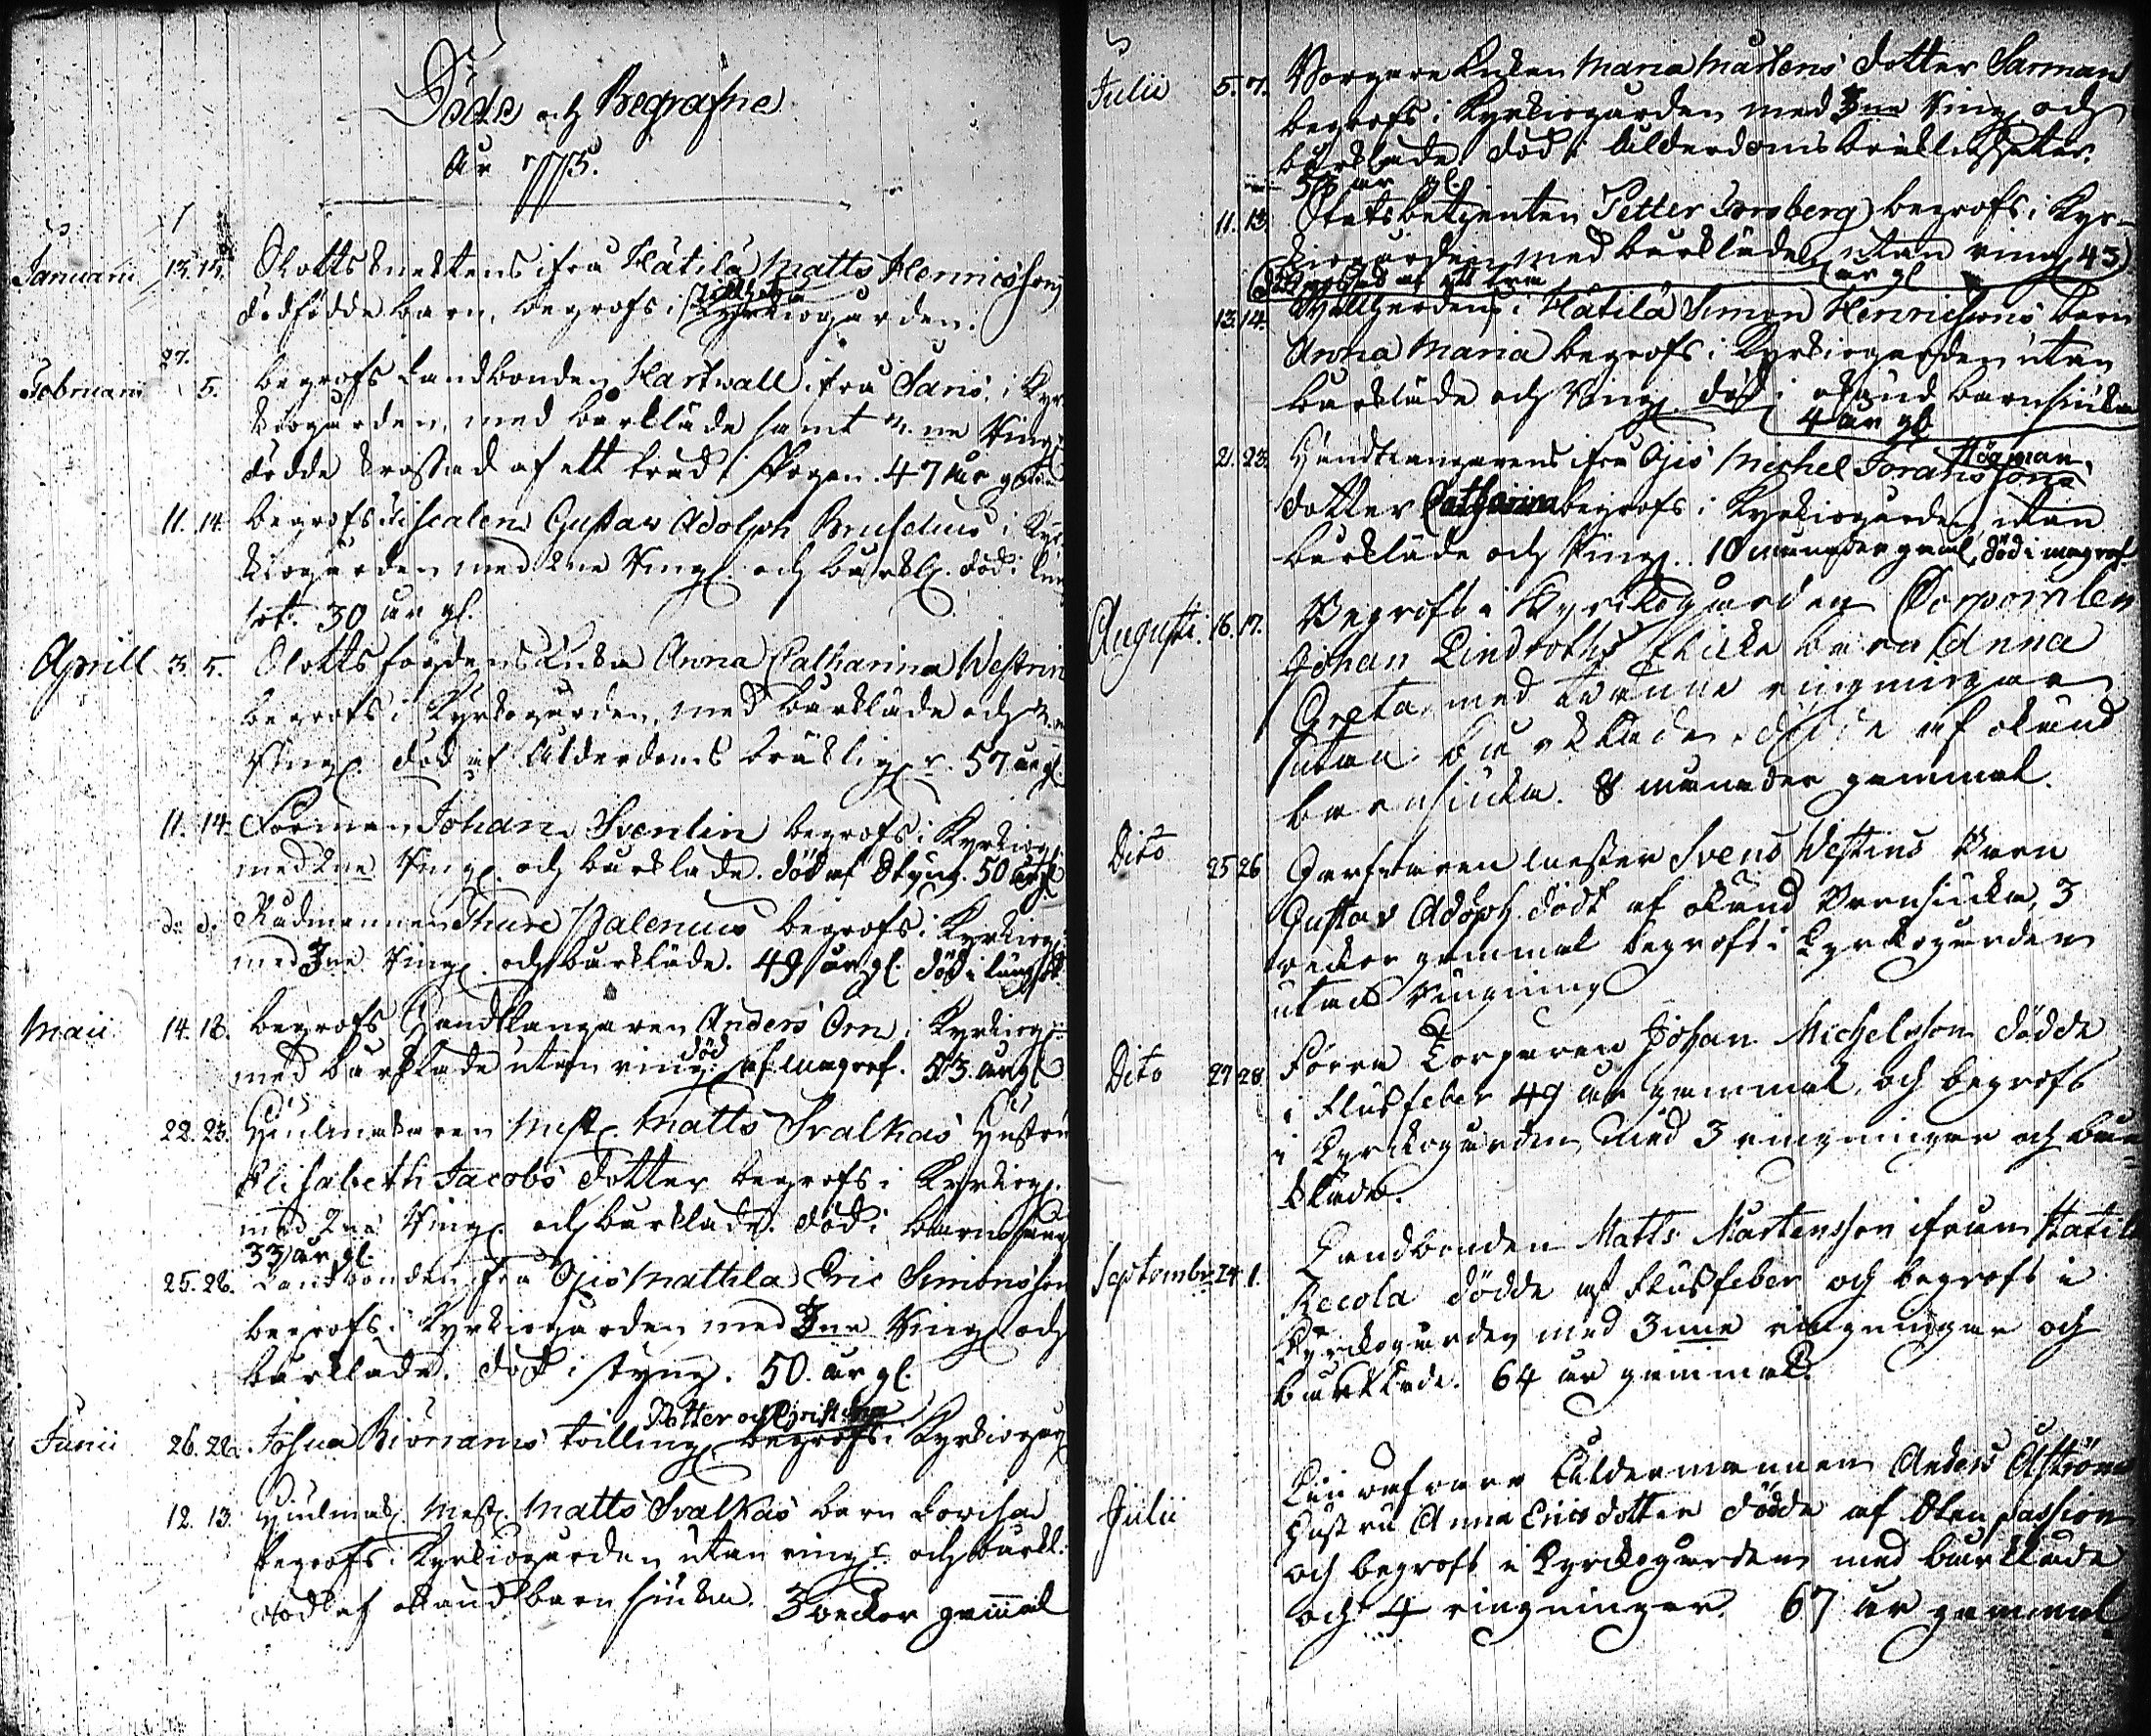 Döde och Begrafne
År 1775.
Januarii 13. 15. Slotts Knektens ifrå Hätilä Matts Henricsson
dödfödde barn, begrofs i Kyrkiogården.
27.
Februarii 5. begrofs Landbonden Hartwall ifrå Saris, i Kyr-
kiogården, med bårkläde samt 2. ne Ring.
dödde krossad af ett träd i skogen. 47 år gl.
11. 14. begrofs Fiscalen Gustav Adolph Bruselius i Kyr-
kiogården med 2ne Ring. och bårkl. död i lung-
sot. 30 år gl.
Aprill 3. 5. Slotts Enka Anna Catharina Westrin
begrofs i Kyrkogården, med bårkläde och
Ring. död af Ålderdoms bräklig. 57 år gl.
11. 14. Johan Svenlin begrofs i Kyrkiog.
med 2ne Ring. och bårkläde. död af Styng. 50 år gl
do. do. Rådmannen Thure Valenius begrofs i Kyrkiog.
med 3ne Ring. och bårkläde. 49 år gl. död i lungsot
Maii 14. 18. begrofs Handtlangaren Anders Orn i Kyrkiog.
med bårkläde utan ring. död af Magref. 53. år gl
22. 23. Hjulmakaren Mest. Matts Svalkas Hustru
Elisabeth Jacobs dotter begrofs i Kyrkiog.
med 2ne Ring. och bårkläde. död i barnsäng
33 år gl.
25. 28. Landbonden ifrå Ojis Mattila Eric Simonsson
begrofs i Kyrkiogården med 3ne Ring. och
bårkläde. död i styng. 50. år gl.
Petter och Christina
Junii 26. 28. Josua Biörnams tvilling. begrofs i Kyrkiogår
12. 13. Hjulmak. Mest. Matts Svalkas barn Lovisa
begrofs i Kyrkiogården utan ring. och bårkl.
död af okänd barnsiuka. 3 veckor gammal
Julii 5. 7. Borgare Enkan Maria Mårtens dotter Sarman
begrofs i Kyrkiogården med 3ne Ring. och
bårkläde. död i Ålderdoms bräkligheter.
år gl.
11. 13. Petter Forsberg begrofs i Kyr-
kiogården med bårkläde utan ring. 43
år gl
13. 14. i Hätilä Simon Henricssons barn
Anna Maria begrofs i Kyrkiogården utan
bårkläde och Ring. död i okänd barnsiuka
4 år gl
21. 23. Handtlangarens ifrå Ojis Michel Göranssons Högman
dotter Catharina begrofs i Kyrkiogården utan
bårkläde och Ring. 10 månader gamal, död i magref
Augusti. 16. 17. Begrofs i Kyrckogården Corporalen
Johan Lindroths flicka barn Anna
Greta, med tvänne ringningar
utan bårkläde. dödde af okänd
barnsiucka. 8 månader gammal.
Dito 25 26 Garfvaren mester Svens Westins Barn
Gustav Adolph dödt af okänd Barnsiucka, 3
veckor gammal begrofs i Kyrckogården
utan Ringning
Dito 27 28 Förra Torparen Johan Michelsson dödde
i Flussfeber 49 år gammal, och begrofs
i Kyrckogården med 3 ringningar och bår-
kläde.
Septembr. 24. 1. Landbonden Matts Mårtensson ifrån Hätilä
Recola dödde af Flussfeber och begrofs i
Kyrckogården med 3nne ringningar och
bårkläde. 64 år gammal.
Julii Åldermannen Anders Åströms
Hustru Anna Ericsdotter dödde af Sten passion
och begrofs i Kyrckogården med bårkläde
och 4 ringningar. 67 år gammal.